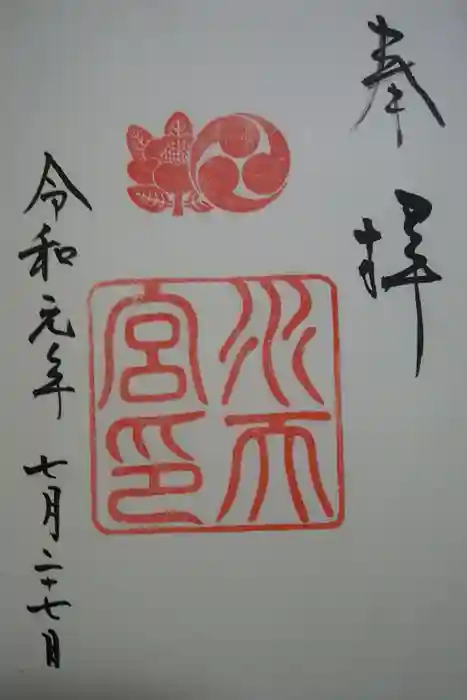 奉拝
水天
宮印
令和元年七月二十七日